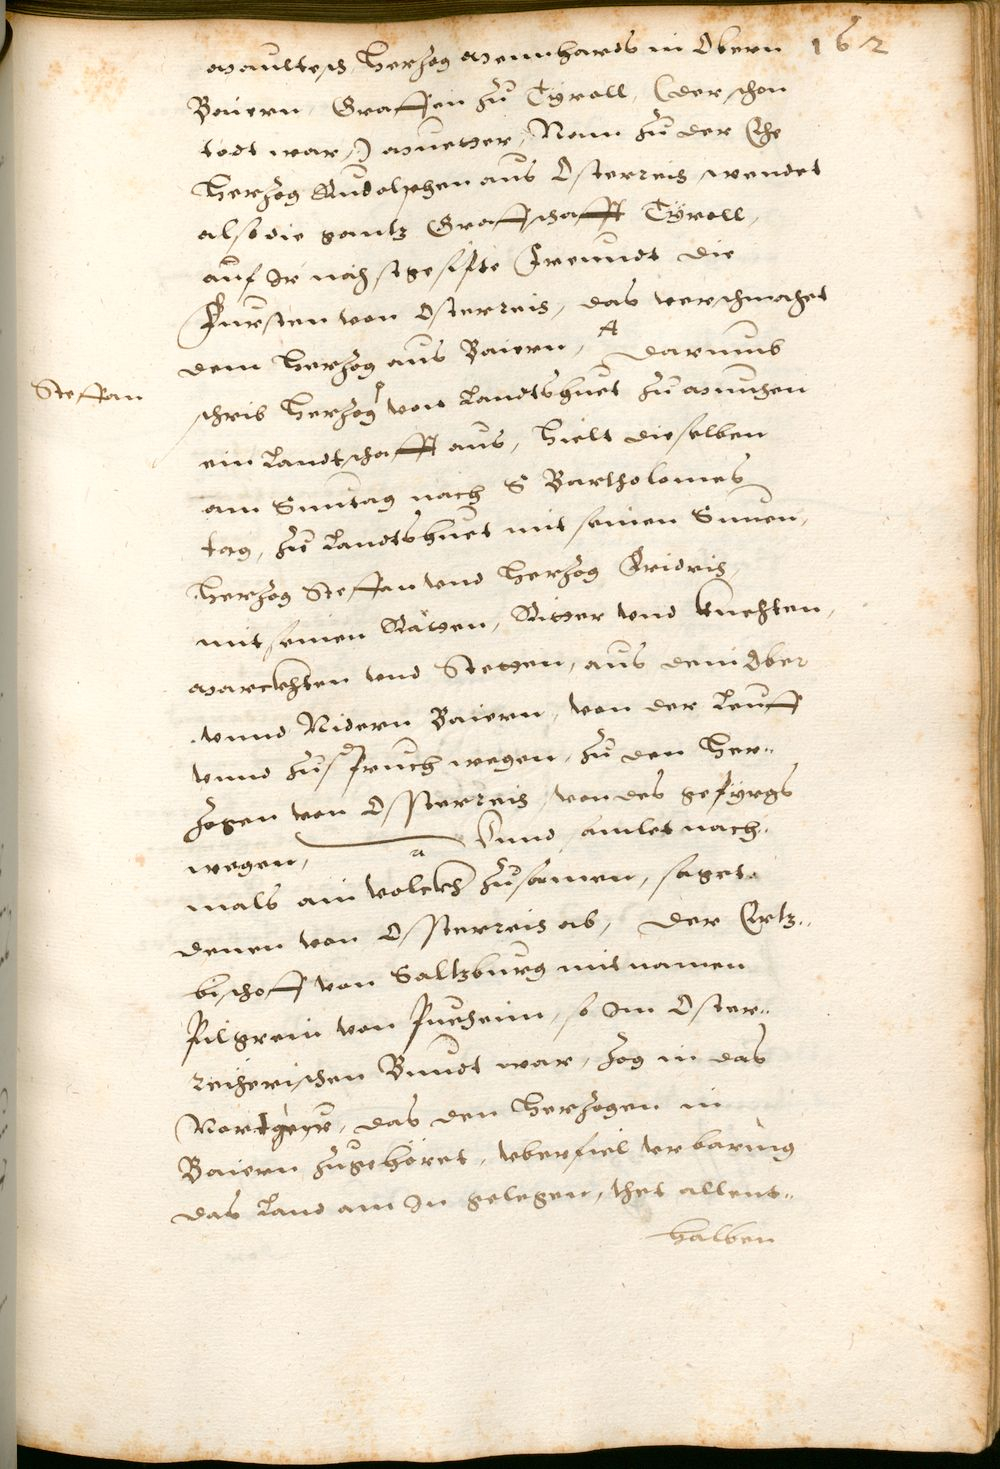 162
Maultesch, Herzog Meinhards in Obern
Baiern, Graffen zu Tyroll, (der schon
todt war,) Muetter, Nam zu der Ehe
Herzog Rudolphen aus Osterreich, wendet
also die gantz Graffschafft Tyroll,
auf Ir nächstgesipte Freundt die
Fursten von Osterreich, das verschmahet
dem Herzog aus Baiern, A Darumb
Steffan
schrib Herzog von Landtshuet zu Munchen
ein Landtschafft aus, hielt dieselben
am Sunntag nach S Bartholomes
tag, zu Landtshuet mit seinen Sunen,
Herzog Steffan vnd Herzog Fridrich,
mit seinen Räthen, Ritter vnd Knechten,
Marckhten vnd Stetten, aus dem Ober
vnnd Nidern Baiern, von der Leuff
vnnd Zuspruch wegen, zu den Her-
zogen von Osterreich, von des gepyrgs
wegen, a Vnnd samlet nach-
mals ain volckh zusamen, saget
denen von Osterreich ab, Der Ertz-
bischoff von Saltzburg mit namen
Pilgrein von Pucheim, so Im Oster-
reicherischen Bundt war, zog in das
Nortgeyr, das den Herzogen in
Baiern zugehöret, vberfiel verbaring
das Land am In gelegen, thet allent-
halben